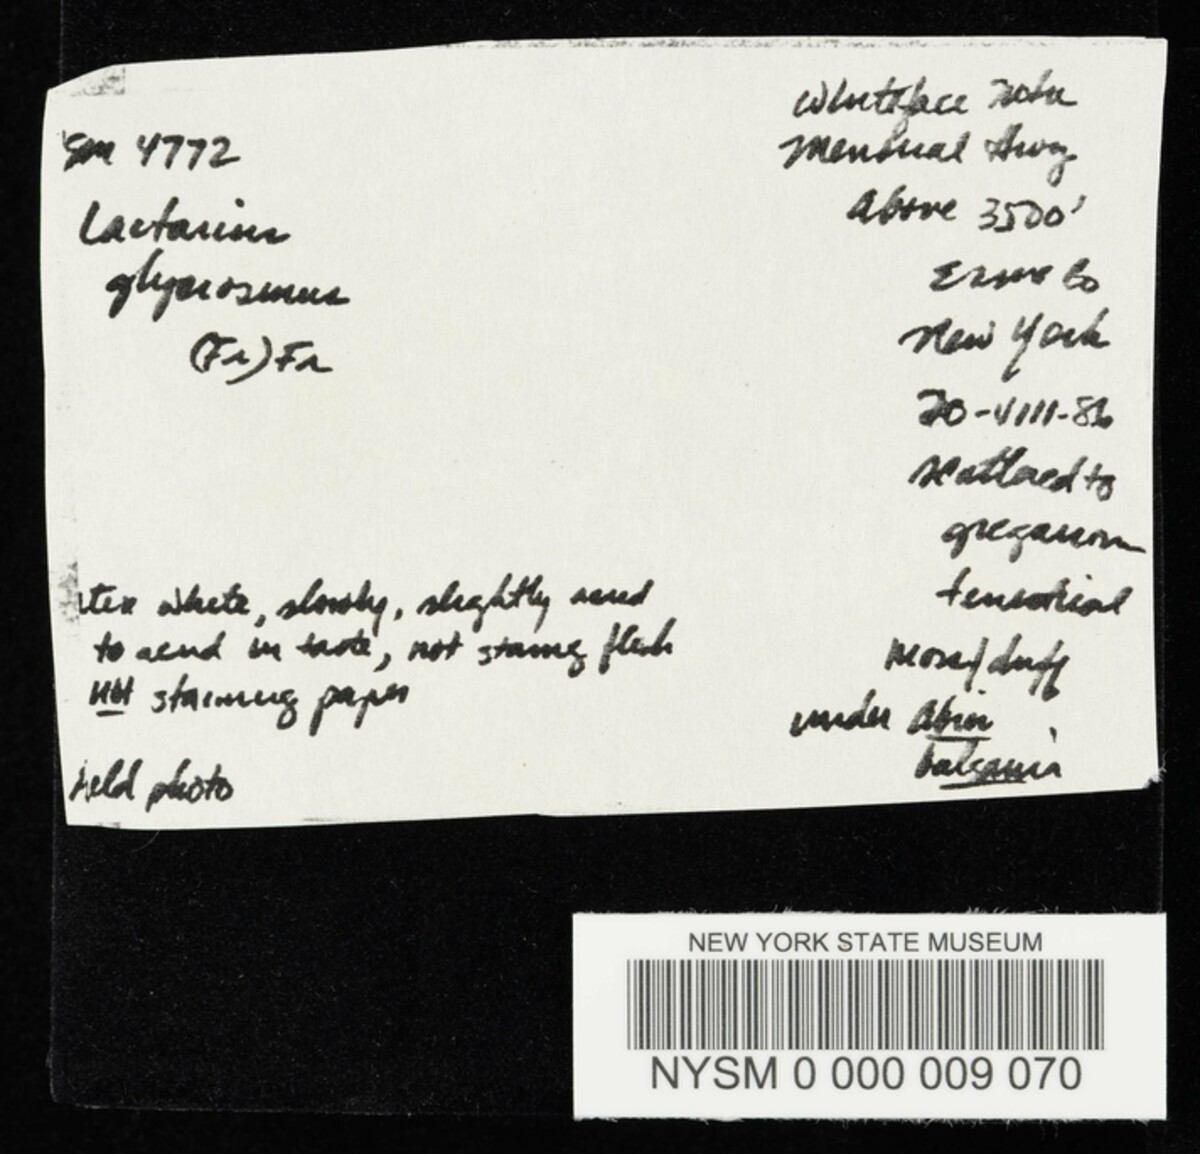 Sm 4772
Lactarius
glyciosmus
(Fr) Fr
Whiteface Mtn
Memorial Hwy
Above 3500'
Essex Co
New York
20-VIII-86
scattered to
gregarious
terrestrial
moss/duff
under Abies
balsamia
tex white, slowly, slightly acrid
to acrid in taste, not staining flesh
not staining paper
Field photo
NEW YORK STATE MUSEUM
NYSM 0 000 009 070